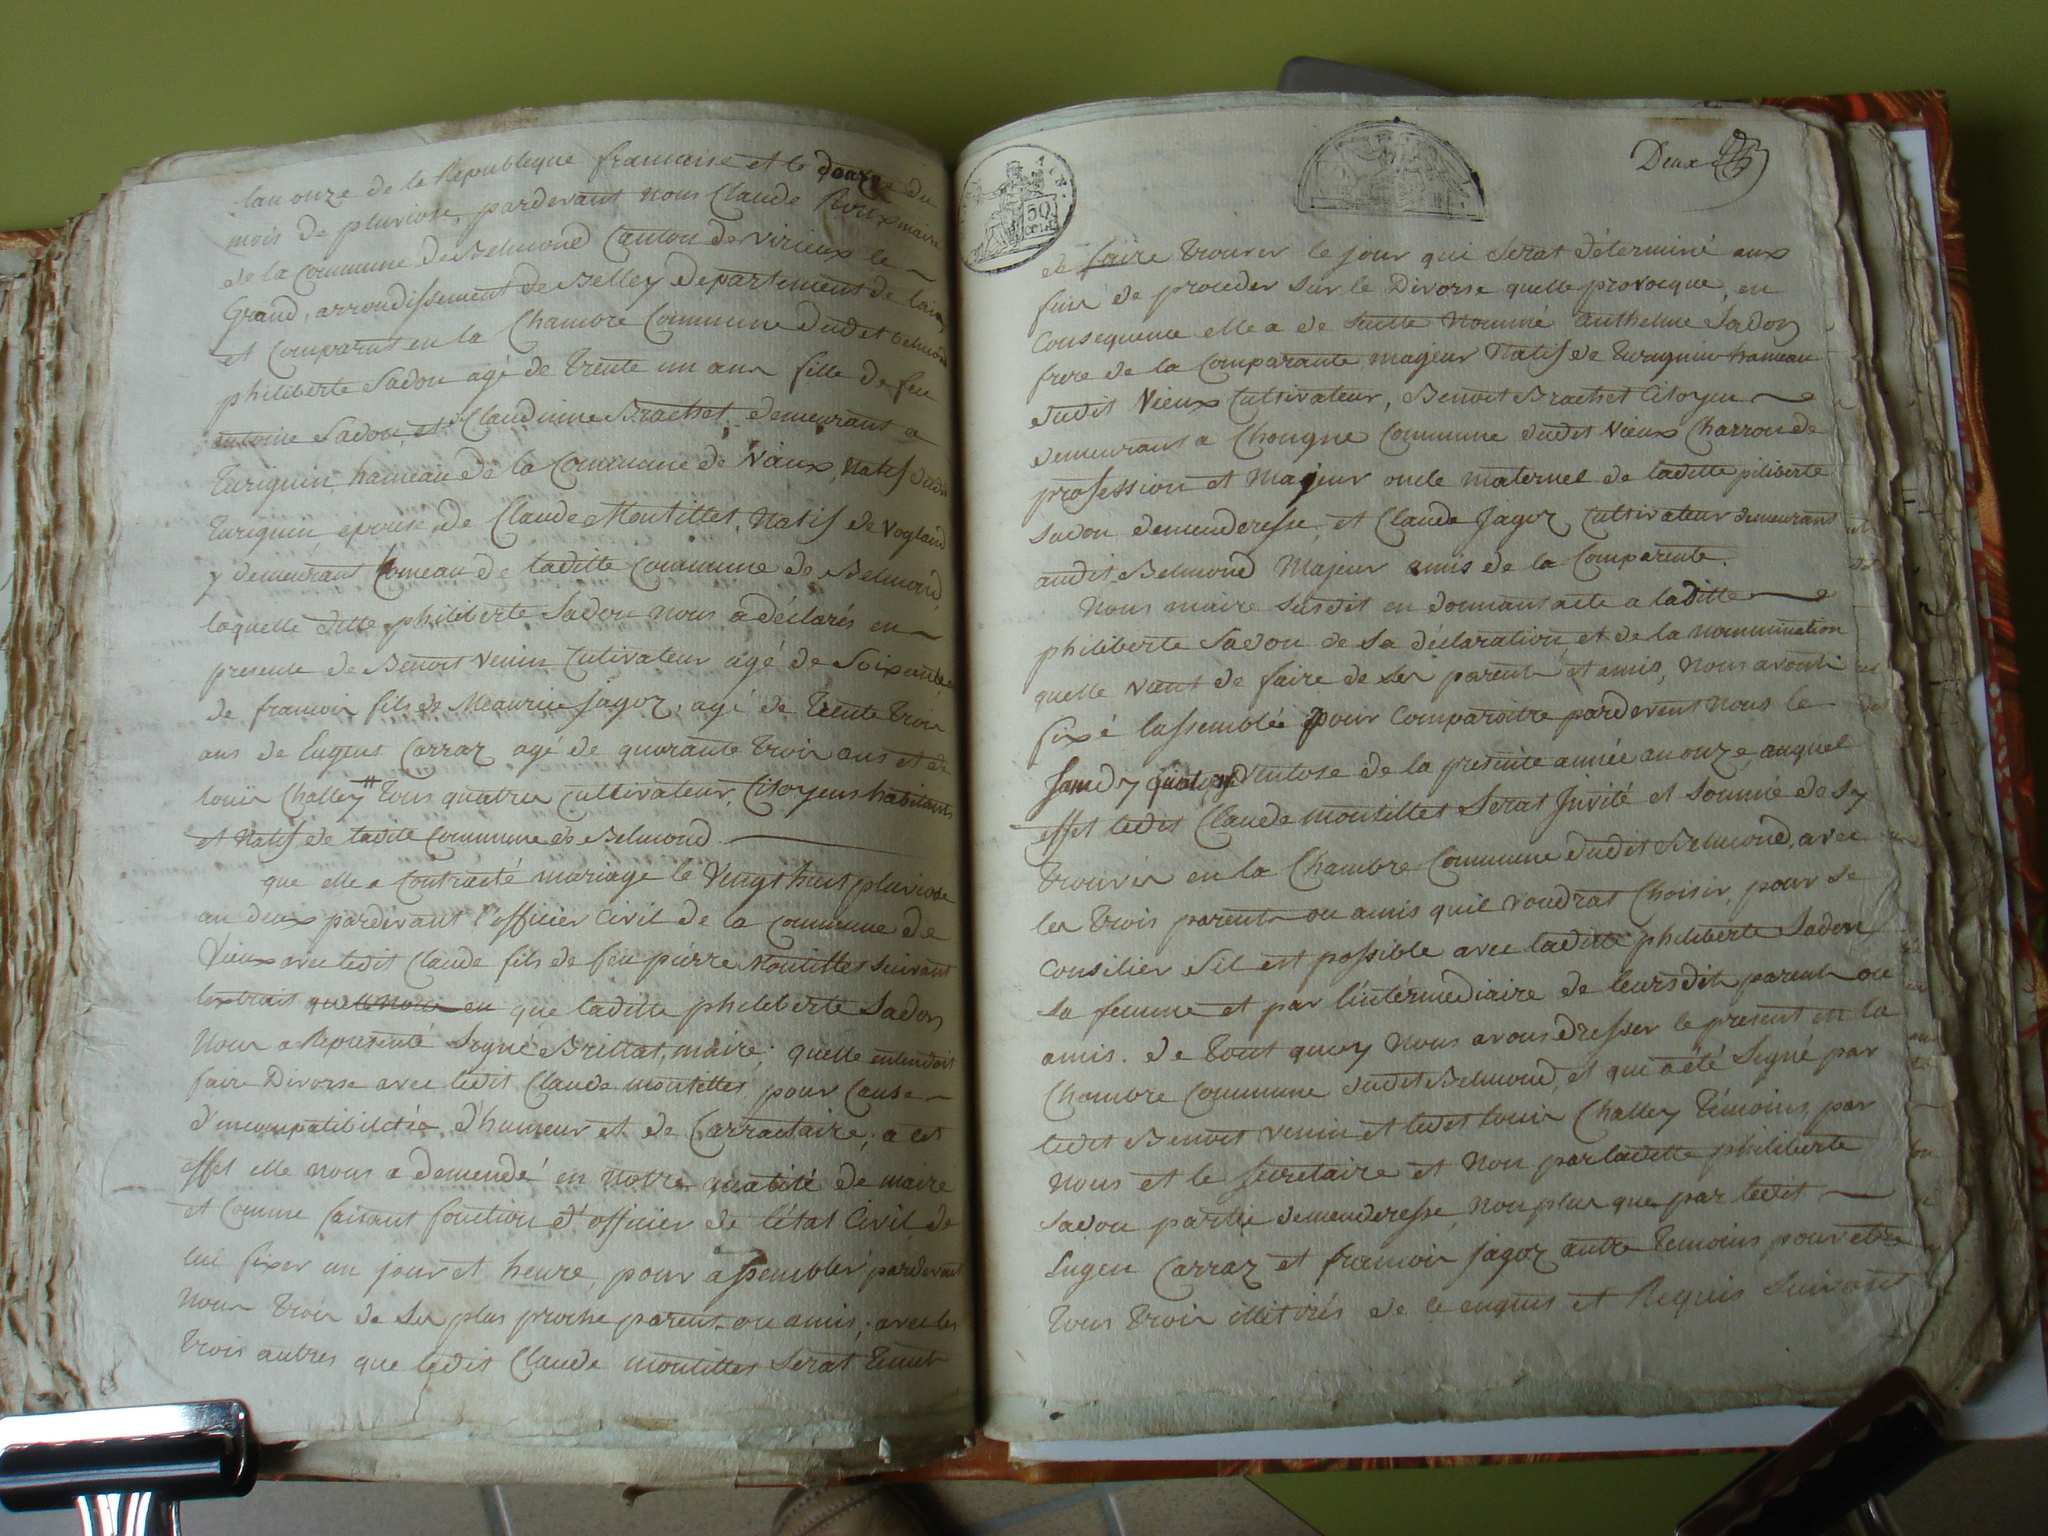 lan onze de la Republique francaise et le douze du
mois de pluviose, pardevant nous Claude Roux maire
de la Commune de Belmond Canton de Virieux le
Grand, arrondissement de Belley departement de lain,
et Comparut en la Chambre Commune dudit Belmond
philiberte Sadon agé de trente un ans fille de feu
antoine Sadon, et Claudinne Brachet, demeurant a
hameau de la Commune de Vieux, Natif dudit
epouse de Claude Montillet, Natif de Vogland
y demeurant homeau de laditte Commune de Belmond,
laquelle ditte philiberte Sadon nous a déclarés en
presente de Benoit Venin Cutivateur agé de Soixante
de francois fils de Meaurice Jagoz, agé de trente trois
ans de Eugene Carraz agé de quarante trois ans et de
louis Challey tous quatre cultivateur, Citoyens habitant
et Natif de ladite Commune de Belmond.
que elle a Contracté mariage le Vingt huit pluviose
an deux pardevant l'officier Civil de la Commune de
Vieux avec ledit Claude fils de feu pierre Montillet Suivant
lextrait que ladite philiberte Sadon
Nous a Representé Signé Brillat, maire; quelle entendoit
faire Divorse avec ledit Claude montillet, pour Cause
d'incompatibilitée d'humeur et de Carractaire, a cet
effet elle nous a demendé en notre qualité de maire
et Comme faisant fonction d'officier de l'état Civil, de
lui fixer un jour et heure, pour assembler pardevant
nous trois de Ses plus proche parent ou amis; avec les
trois autres que ledit Claude montillet Serat tenut
50
Deux
de faire trouver le jour qui Serat déterminé aux
fins de proceder Sur le Divorse quelle provocque, en
Consequence elle a de Suitte Nommé anthelme Sadon
frere de la Comparante majeur Natif de hameau
dudit Vieux Cultivateur, Benoit Brachet Citoyen
demeurant a Chougne Commune dudit Vieux Charron de
profession et Majeur oncle maternel de laditte piliberte
Sadon demenderesse, et Claude Jagoz Cultivateur demeurant
audit Belmond Majeur amis de la Comparente.
Nous maire Susdit en donnant acte a laditte
philiberte Sadon de Sa déclaration et de la nommination
quelle vient de faire de Ses parent et amis, Nous avont
fixé lassemblée pour Comparoitre pardevent Nous le
Samdy ventose de la presente année an onze, auquel
effet ledit Claude montillet Serat Invité et Sommé de Sy
trouver en la Chambre Commune dudit Belmond, avec
les trois parent ou amis quil voudrat Choisir, pour Se
Consilier Sil est possible avec laditte philiberte Sadon
Sa femme et par l'intermediaire de leurs dit parent ou
amis. de tout quoy Nous avons dresser le present en la
Chambre Commune dudit Belmond, et qui a été Signé par
ledit Benoit Venin et ledit louis Challey témoins, par
nous et le Secretaire et Non par laditte philiberte
Sadon partie demenderesse, non plus que par ledit
Eugen Carraz et francois Jagoz autre temoins pour etre
tous trois illitirés de le enquis et Requis Suivant